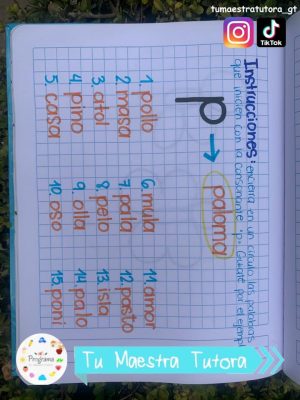 tumaestratutora_gt
TikTok
Instrucciones: encierra en un círculo las palabras
que inicien con la consonante "p". Guíate por el ejempl
p → paloma
1. pollo
2. masa
3. atol
4. pino
5. casa
6. mula
7. pala
8. pelo
9. olla
10. oso
11. amor
12. pasto
13. isla
14. pato
15. pani
Programa
Tu Maestra Tutora